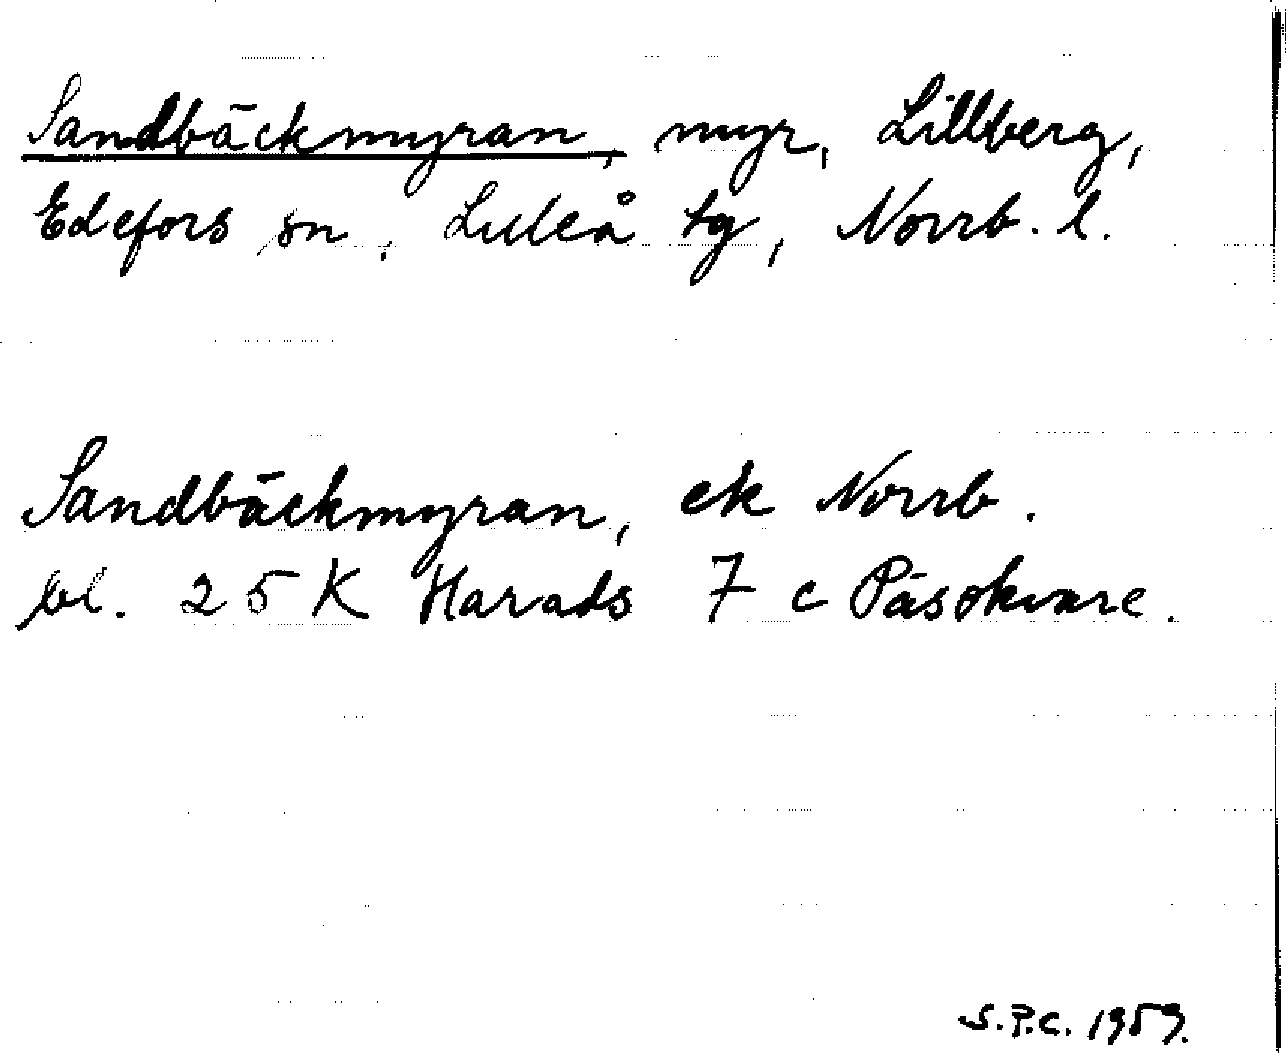 Sandbäckmyran, myr, Lillberg,
Edefors sn, Luleå tg, Norrb. l.
Sandbäckmyran, ek Norrb.
bl. 25 K Harads 7 c Påsokvare.
S.P.C. 1959.